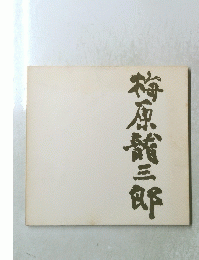 梅原龍三郎